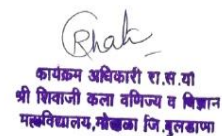 कार्यक्रम अधिकारी रा.से.यो
श्री शिवाजी कला वणिज्य व विज्ञान
महाविद्यालय, जि.बुलडाणा